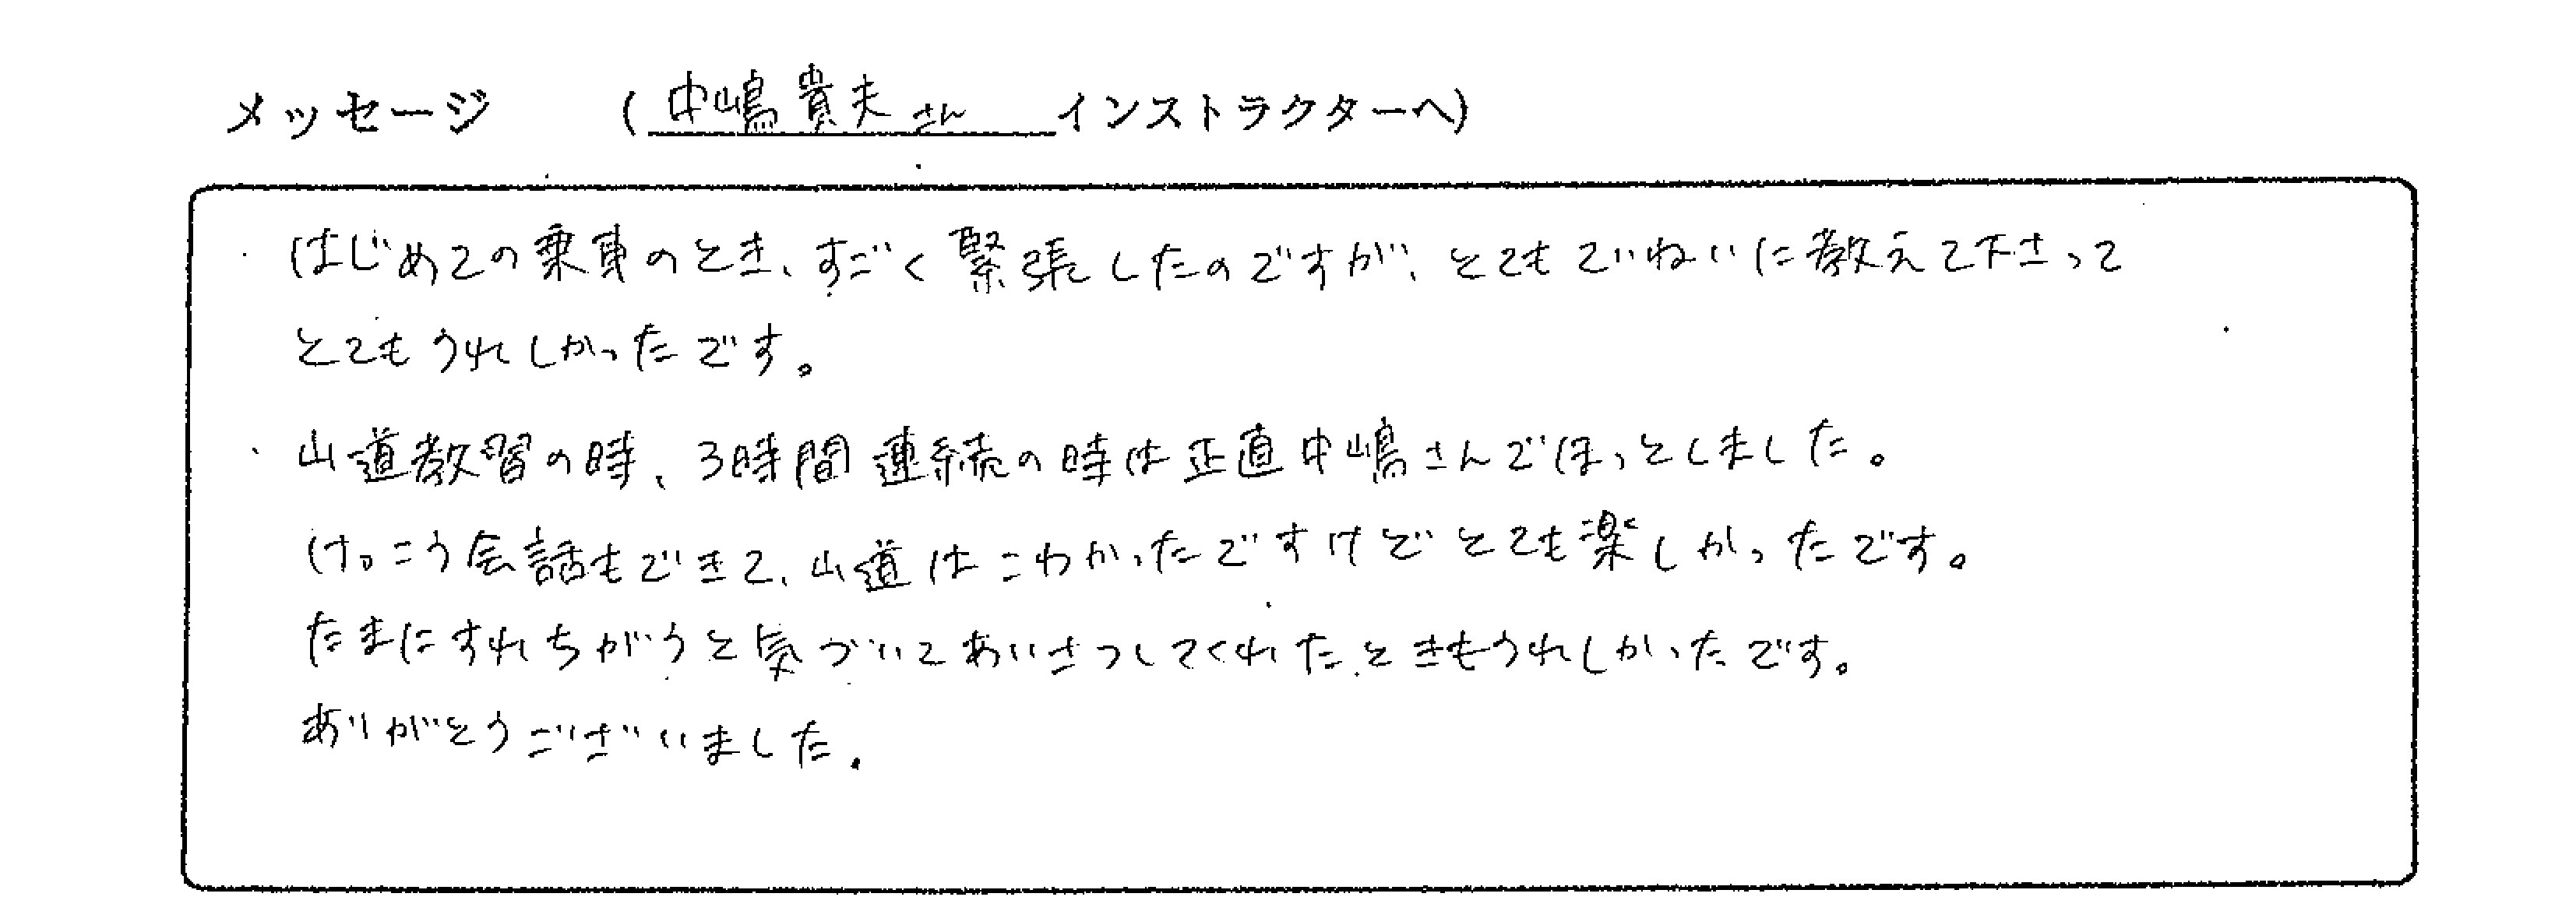 メッセージ (中嶋貴夫さん インストラクターへ)
・はじめての乗車のとき、すごく緊張したのですが、とてもていねいに教えて下さって
とてもうれしかったです。
・山道教習の時、3時間連続の時は正直中嶋さんでほっとしました。
けっこう会話もできて、山道はこわかったですけどとても楽しかったです。
たまにすれちがうと気づいてあいさつしてくれたときもうれしかったです。
ありがとうございました.